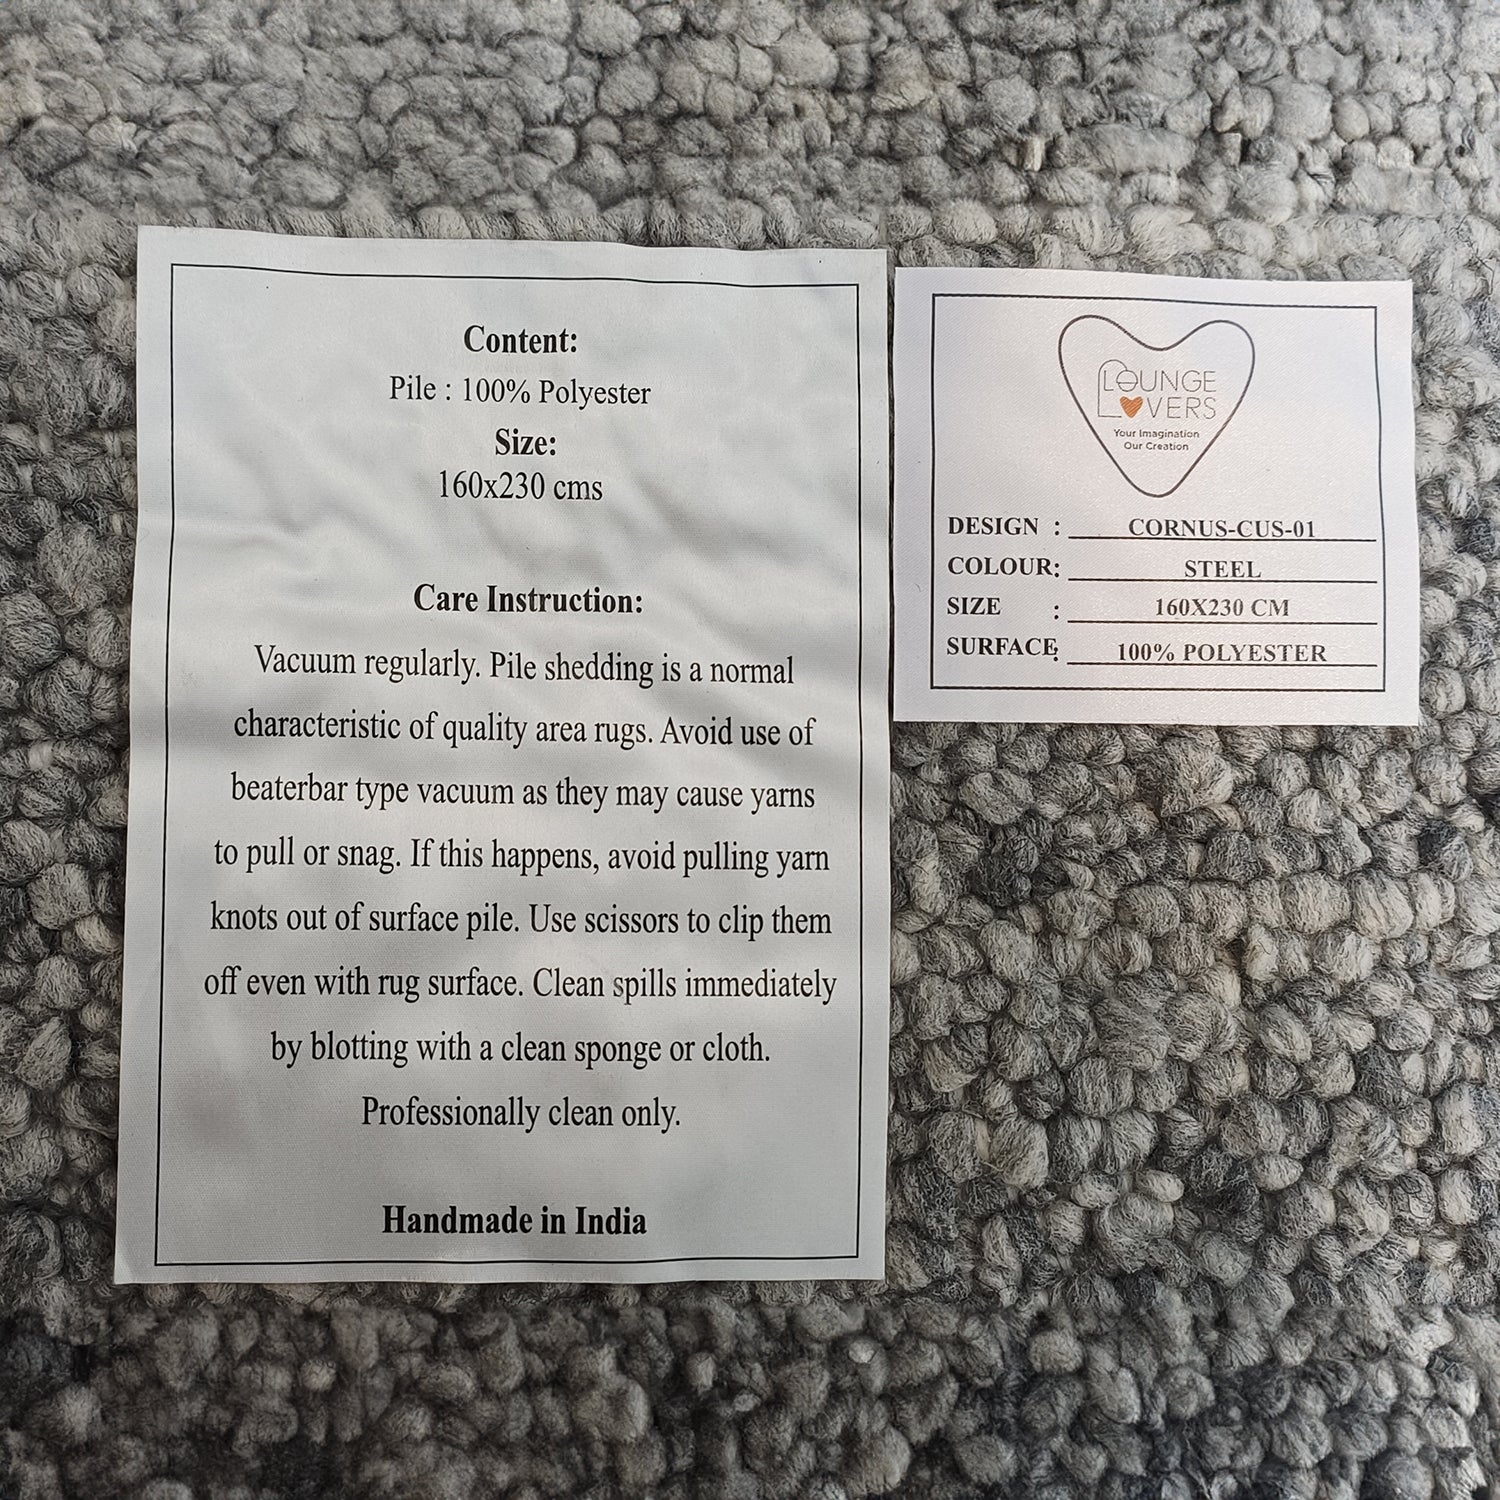 Content:
Pile : 100% Polyester
Size:
160x230 cms
Care Instruction:
Vacuum regularly. Pile shedding is a normal
characteristic of quality area rugs. Avoid use of
beaterbar type vacuum as they may cause yarns
to pull or snag. If this happens, avoid pulling yarn
knots out of surface pile. Use scissors to clip them
off even with rug surface. Clean spills immediately
by blotting with a clean sponge or cloth.
Professionally clean only.
Handmade in India
LOUNGE
LOVERS
Your Imagination
Our Creation
DESIGN : CORNUS-CUS-01
COLOUR: STEEL
SIZE : 160X230 CM
SURFACE: 100% POLYESTER